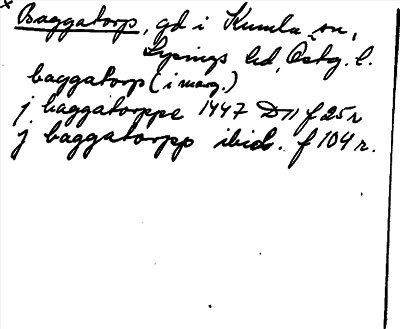 x Baggatorp, gd i Kumla sn,
Lysings hd, Östg. l.
baggatorp (i marg.)
j baggatorppe 1447 D11 f 25r
j baggatorpp ibid. f 104 r.